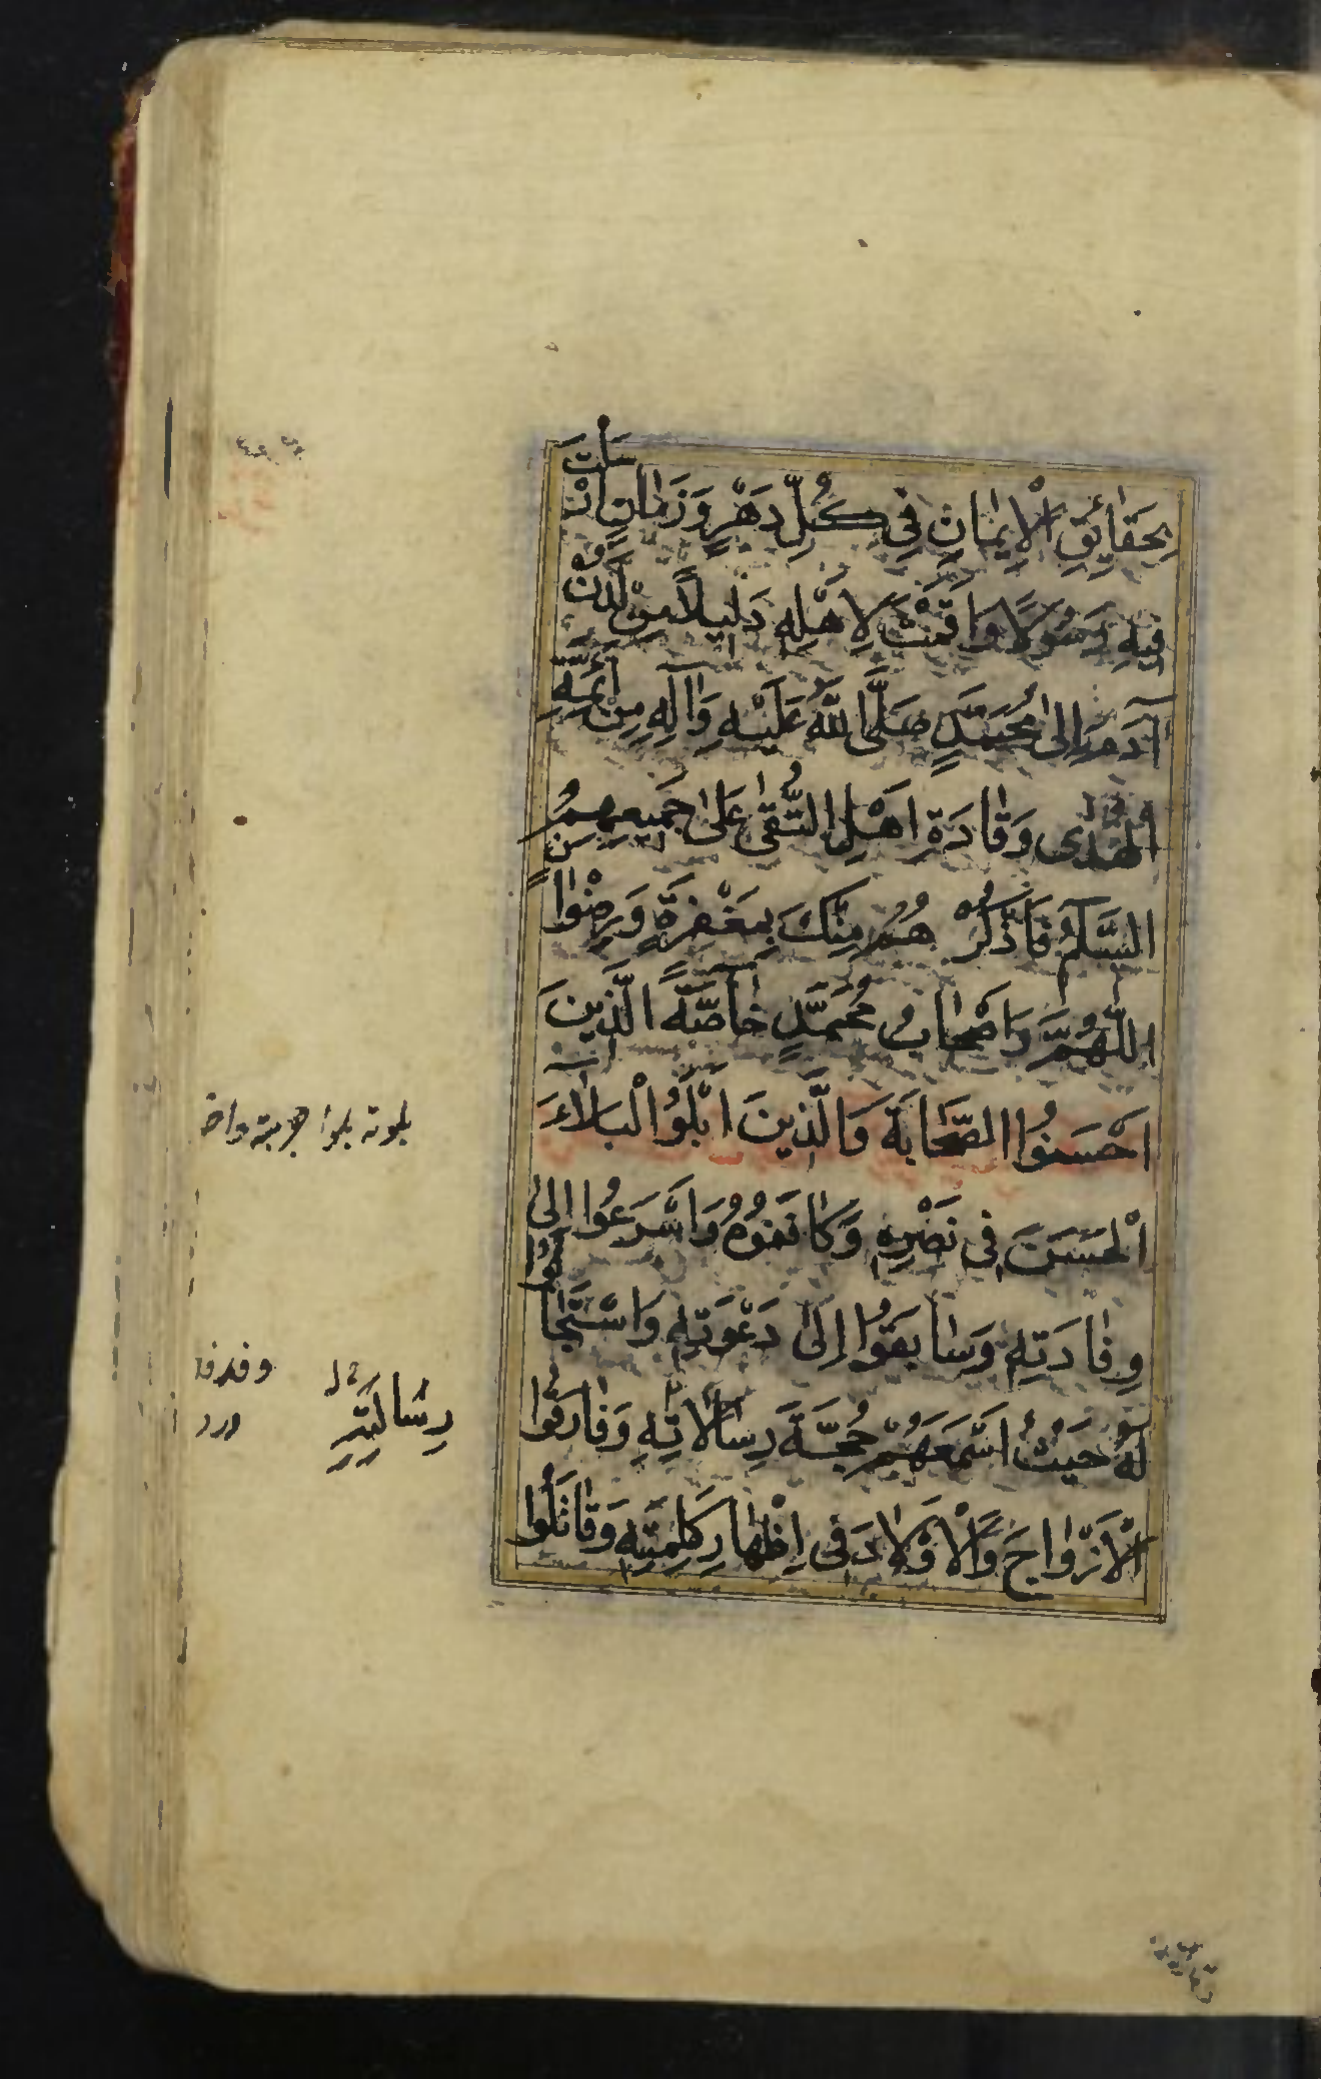 بِحَقَائِقِ الْإِيمَانِ فِي كُلِّ دَهْرٍ وَزَمَانٍ اَرْسَلْتَ
فِيهِ رَسُولًا وَاَقَمْتَ لِاَهْلِهِ دَلِيلًا مِنْ لَدُنْ
آدَمَ اِلىٰ مُحَمَّدٍ صَلَّى اللّٰهُ عَلَيْهِ وَآلِهِ مِنْ اَئِمَّةِ
الْهُدٰى وَقَادَةِ اَهْلِ التُّقىٰ عَلىٰ جَمِيعِهِمُ
السَّلَامُ فَاذْكُرْهُمْ مِنْكَ بِمَغْفِرَةٍ وَرِضْوَانٍ
اللّٰهُمَّ وَاَصْحَابُ مُحَمَّدٍ خَاصَّةً الَّذِينَ
اَحْسَنُوا الصَّحَابَةَ وَالَّذِينَ اَبْلَوُا الْبَلَاءَ
الْحَسَنَ فِي نَصْرِهِ وَكَانَفُوهُ وَاَسْرَعُوا اِلىٰ
وِفَادَتِهِ وَسَابَقُوا اِلىٰ دَعْوَتِهِ وَاسْتَجَابُوا
لَهُ حَيْثُ اَسْمَعَهُمْ حُجَّةَ رِسَالَاتِهِ وَفَارَقُوا
الْاَزْوَاجَ وَالْاَوْلَادَ فِي اِظْهَارِ كَلِمَتِهِ وَقَاتَلُوا
بلوته بلوا
رِسَالَتِهِ